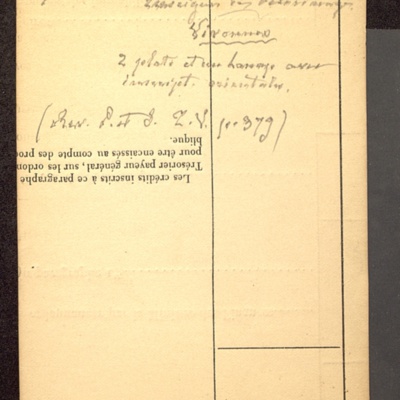 Vivonne
2 plats et un hanap avec
inscript. orientales.
(Rev. P. et S. 
p. 379)
Les crédits inscrits à ce paragraphe
Trésorier payeur général, sur les ordon
pour être encaissés au compte des proc
blique.